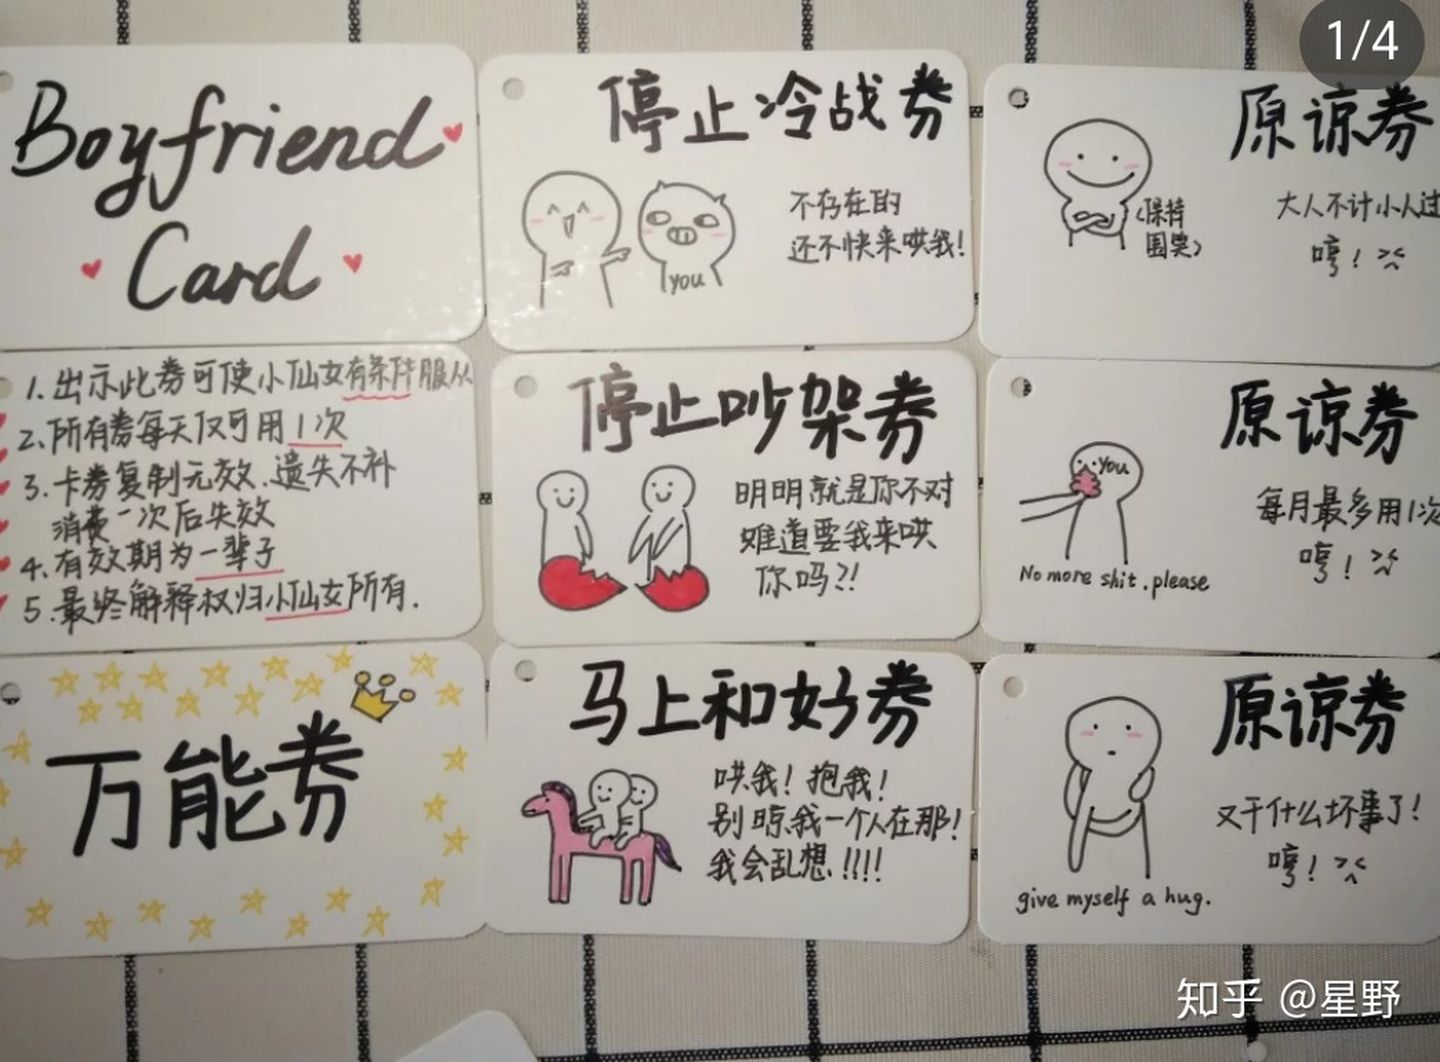 1/4
Boyfriend
Card
停止冷战券
不存在的
还不快来哄我!
you
原谅券
(保持
围笑)
大人不计小人过
哼! ><
1. 出示此券可使小仙女有条件服从
2. 所有券每天仅可用1次
3. 卡券复制无效.遗失不补
消费一次后失效
4. 有效期为一辈子
5. 最终解释权归小仙女所有.
停止吵架券
明明就是你不对
难道要我来哄
你吗?!
原谅券
You
每月最多用1次
哼! ><
No more shit, please
万能券
马上和好券
哄我! 抱我!
别晾我一个人在那!
我会乱想!!!!
原谅券
又干什么坏事了!
哼! ><
give myself a hug.
知乎 @星野